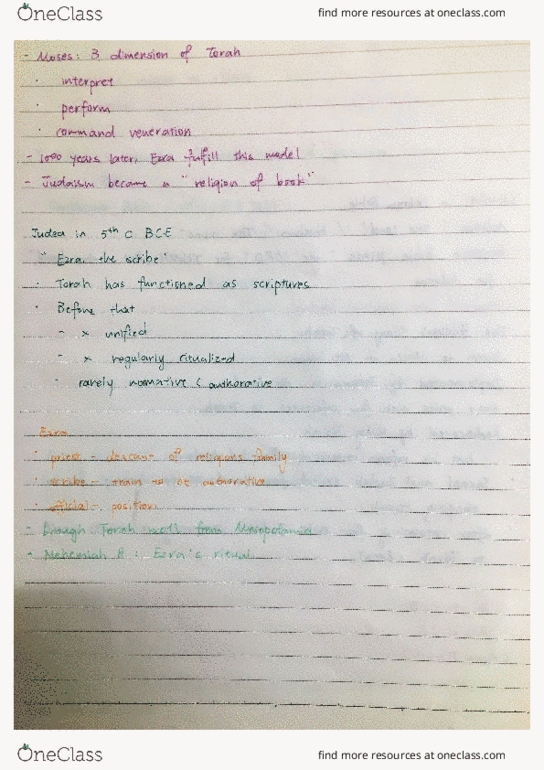 OneClass
find more resources at oneclass.com
- Moses: 3 dimension of Torah
· interpret
· perform
· command veneration
- 1000 years later, Ezra fulfill this model
- Judaism became a "religion of book"
Judea in 5th C BCE
· "Ezra, the scribe"
· Torah has functioned as scriptures
· Before that
- x unified
- x regularly ritualized
· rarely normative & authorative
Ezra
· priest - of religious family
· scribe - train to be authorative
· official - position
- brough Torah scroll from Mesopotamia
- Nehemiah 8 : Ezra's ritual
OneClass
find more resources at oneclass.com